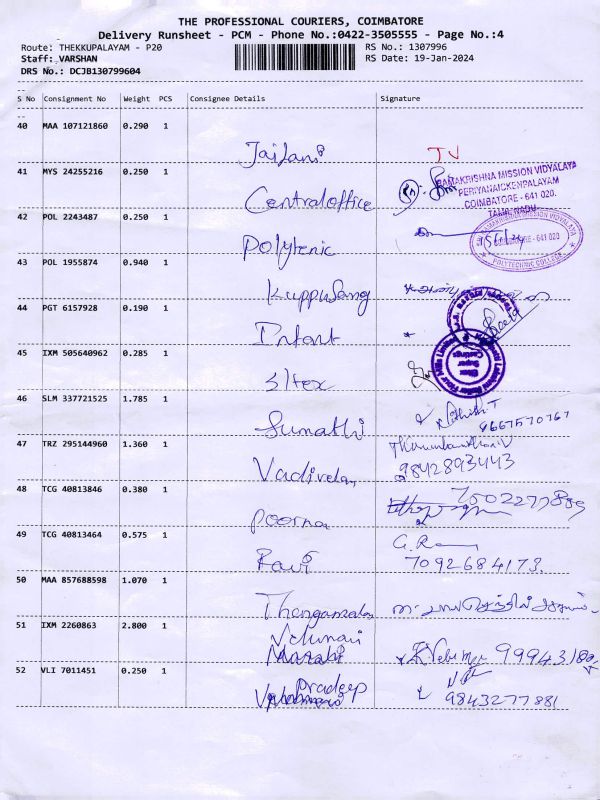 THE PROFESSIONAL COURIERS, COIMBATORE
Delivery Runsheet - PCM - Phone No.:0422-3505555 - Page No.:4
Route: THEKKUPALAYAM - P20 RS No.: 1307996
Staff: VARSHAN RS Date: 19-Jan-2024
DRS No.: DCJB130799604
S No Consignment No Weight PCS Consignee Details Signature
40 MAA 107121860 0.290 1
Jailani JV
41 MYS 24255216 0.250 1
RAMAKRISHNA MISSION VIDYALAYA
PERIYANAICKENPALAYAM
COIMBATORE - 641 020.
TAMIL NADU
Centraloffice
42 POL 2243487 0.250 1
Polytenic
RAMAKRISHNA MISSION VIDYALAYA
COIMBATORE - 641 020
POLYTECHNIC COLLEGE
43 POL 1955874 0.940 1
Kuppusang
44 PGT 6157928 0.190 1
Infant
45 IXM 505640962 0.285 1
Sltex
46 SLM 337721525 1.785 1
Sumathi
9667570767
47 TRZ 295144960 1.360 1
Vadivelan
9842893443
48 TCG 40813846 0.380 1
Poorna
49 TCG 40813464 0.575 1
Ravi G. Ram
7092684173.
50 MAA 857688598 1.070 1
51 IXM 2260863 2.800 1
52 VLI 7011451 0.250 1
Pradeep
9843277881